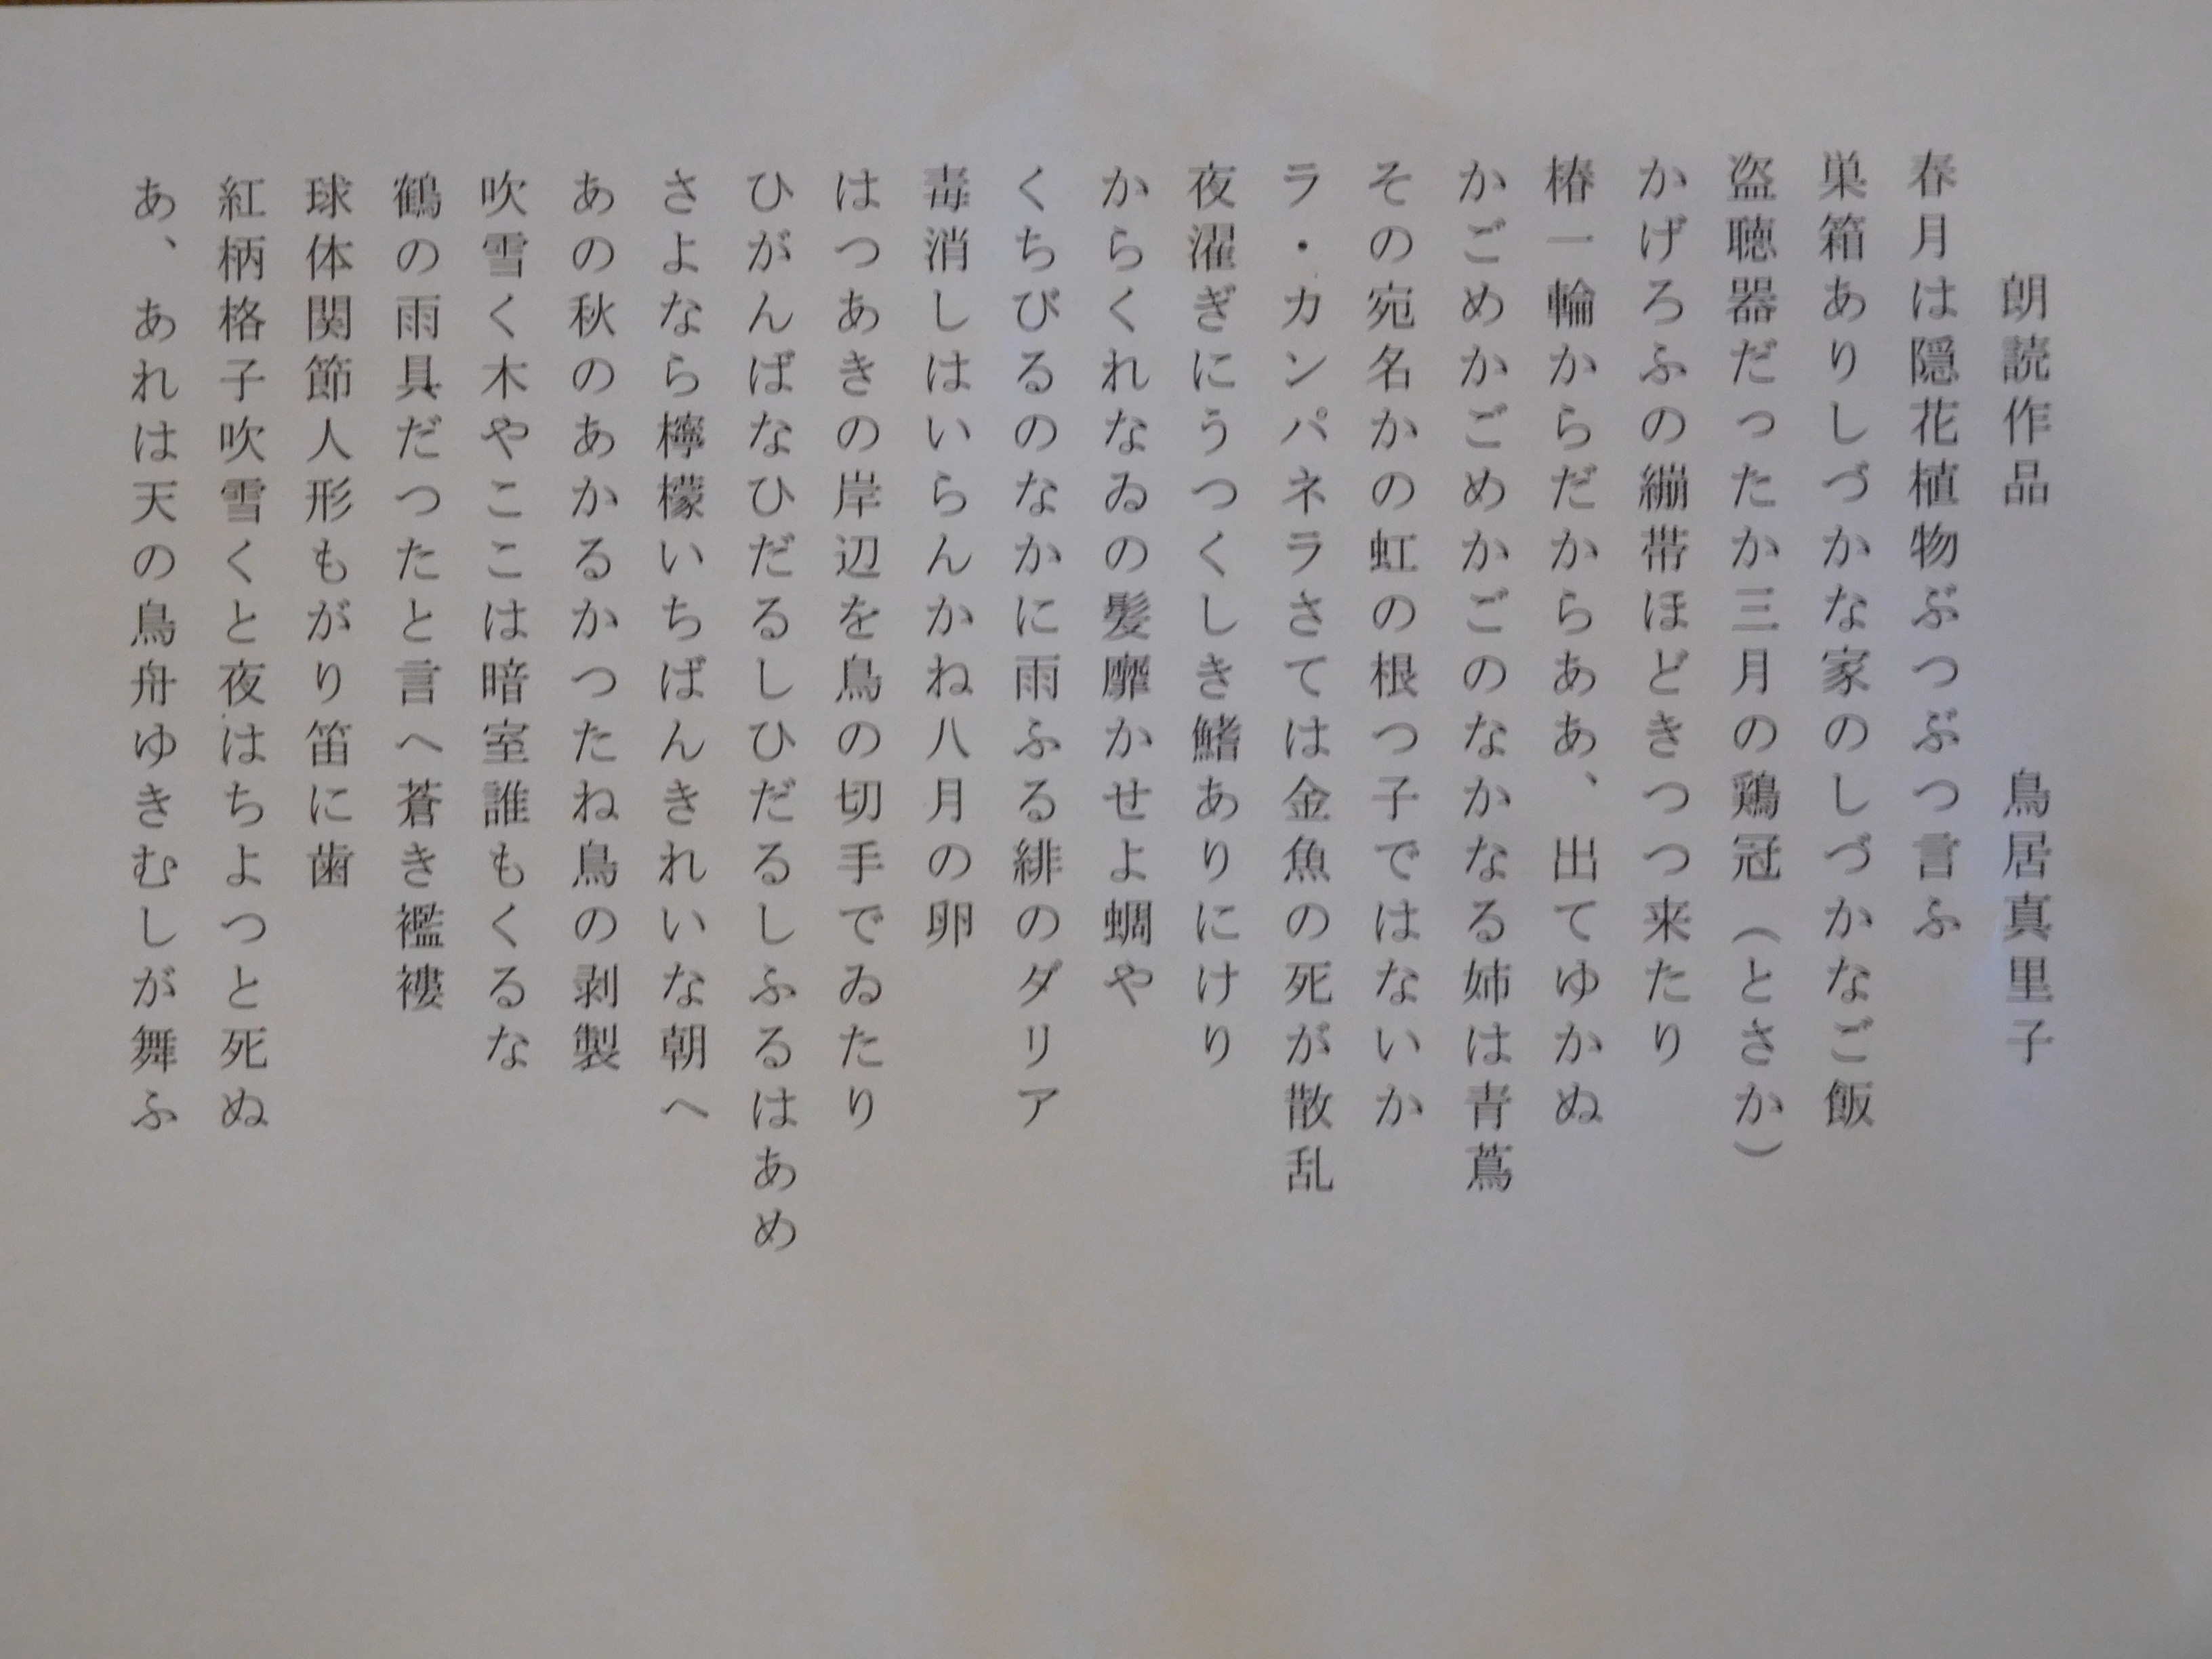 朗読作品　鳥居真里子
春月は隠花植物ぶつぶつ言ふ
巣箱ありしづかな家のしづかなご飯
盗聴器だったか三月の鶏冠（とさか）
かげろふの繃帯ほどきつつ来たり
椿一輪からだからああ、出てゆかぬ
かごめかごめかごのなかなる姉は青蔦
その宛名かの虹の根つ子ではないか
ラ・カンパネラさては金魚の死が散乱
夜濯ぎにうつくしき鰭ありにけり
からくれなゐの髪靡かせよ蜩や
くちびるのなかに雨ふる緋のダリア
毒消しはいらんかね八月の卵
はつあきの岸辺を鳥の切手でゐたり
ひがんばなひだるしひだるしふるはあめ
さよなら檸檬いちばんきれいな朝へ
あの秋のあかるかつたね鳥の剥製
吹雪く木やここは暗室誰もくるな
鶴の雨具だつたと言へ蒼き襤褸
球体関節人形もがり笛に歯
紅柄格子吹雪くと夜はちよつと死ぬ
あ、あれは天の鳥舟ゆきむしが舞ふ